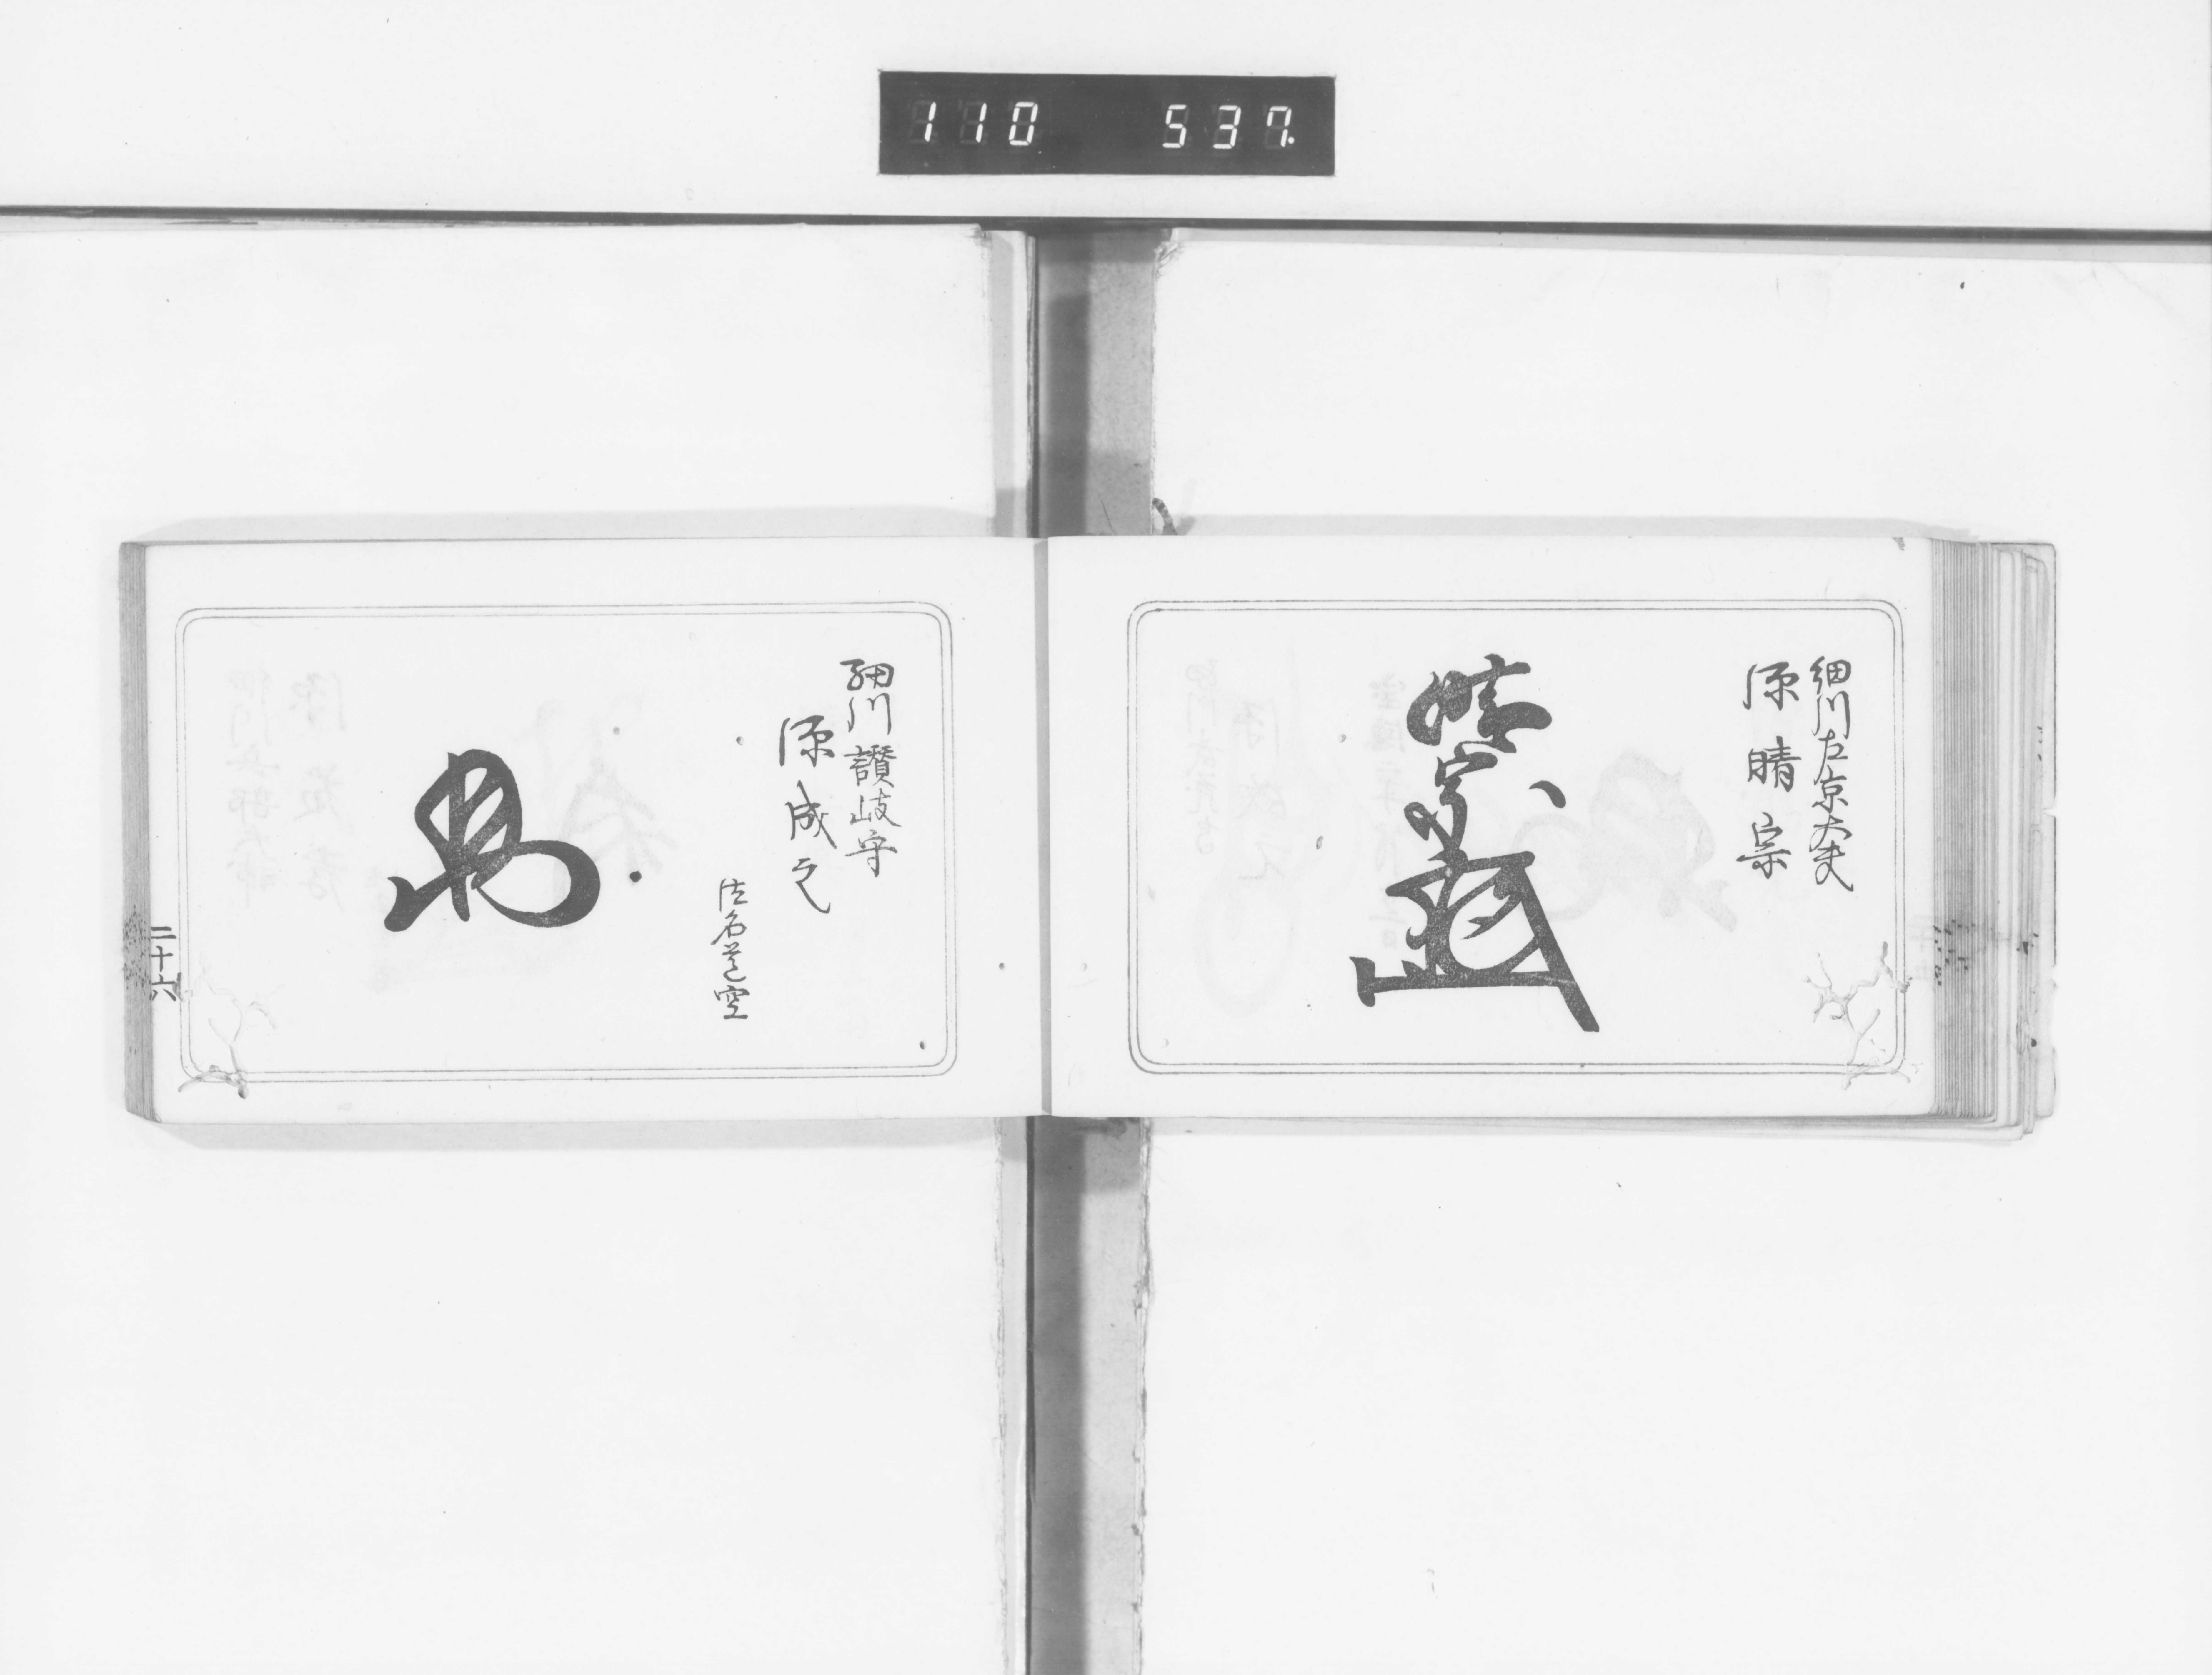 110 537
細川左京大夫
源晴宗
晴宗
細川讃岐守
源成之
法名道空
二十六